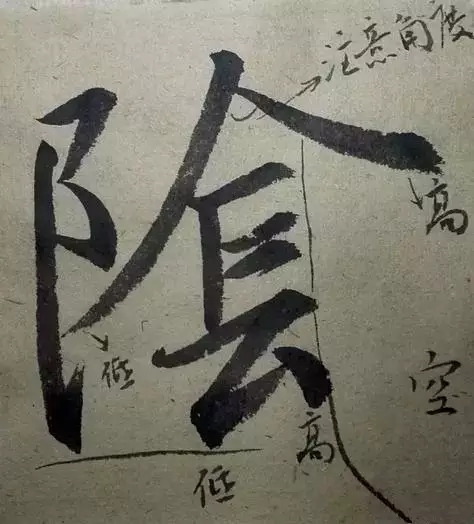 陰
注意角度
高
低
空
高
低